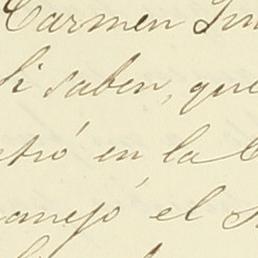 Carmen
Si saben, que
etró en la
anejó el